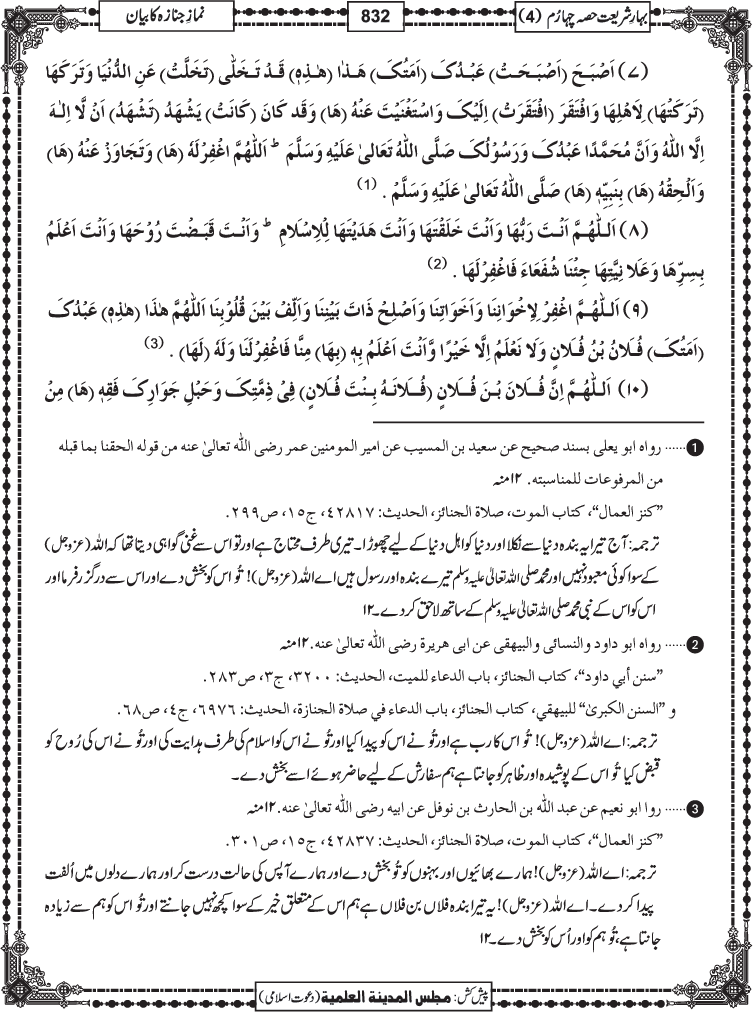 بہارِشریعت حصہ چہارم (4)
832
نمازِ جنازہ کا بیان
(۷) اَصْبَحَ (اَصْبَحَتْ) عَبْدُکَ (اَمَتُکَ) ھٰذَا (ھٰذِہٖ) قَدْ تَخَلّٰی (تَخَلَّتْ) عَنِ الدُّنْیَا وَتَرَکَھَا
(تَرَکَتْھَا) لِاَھْلِھَا وَافْتَقَرَ (افْتَقَرَتْ) اِلَیْکَ وَاسْتَغْنَیْتَ عَنْہُ (ھَا) وَقَد کَانَ (کَانَتْ) یَشْھَدُ (تَشْھَدُ) اَنْ لَّا اِلٰـہَ
اِلَّا اللہُ وَاَنَّ مُحَمَّدًا عَبْدُکَ وَرَسُوْلُکَ صَلَّی اللہُ تَعَالیٰ عَلَیْہِ وَسَلَّمَ ؕ اَللّٰھُمَّ اغْفِرْلَہٗ (ھَا) وَتَجَاوَزْ عَنْہُ (ھَا)
وَاَلْحِقْہُ (ھَا) بِنَبِیِّہٖ (ھَا) صَلَّی اللہُ تَعَالیٰ عَلَیْہِ وَسَلَّمْ . (1)
(۸) اَللّٰھُمَّ اَنْتَ رَبُّھَا وَاَنْتَ خَلَقْتَھَا وَاَنْتَ ھَدَیْتَھَا لِلْاِسْلَامِ ؕ وَاَنْتَ قَبَضْتَ رُوْحَھَا وَاَنْتَ اَعْلَمُ
بِسِرِّھَا وَعَلَا نِیَّتِھَا جِئْنَا شُفَعَاءَ فَاغْفِرْلَھَا . (2)
(۹) اَللّٰھُمَّ اغْفِرْ لِاِخْوَانِنَا وَاَخَوَاتِنَا وَاَصْلِحْ ذَاتَ بَیْنِنَا وَاَلِّفْ بَیْنَ قُلُوْبِنَا اَللّٰھُمَّ ھٰذَا (ھٰذِہٖ) عَبْدُکَ
(اَمَتُکَ) فُلَانُ بْنُ فُلَانٍ وَلَا نَعْلَمُ اِلَّا خَیْرًا وَّاَنْتَ اَعْلَمُ بِہٖ (بِھَا) مِنَّا فَاغْفِرْلَنَا وَلَہٗ (لَھَا) . (3)
(۱۰) اَللّٰھُمَّ اِنَّ فُلَانَ بْنَ فُلَانٍ (فُلَانَۃَ بِنْتَ فُلَانٍ) فِیْ ذِمَّتِکَ وَحَبْلِ جَوَارِکَ فَقِہٖ (ھَا) مِنْ
1 ...... رواہ ابو یعلی بسند صحیح عن سعید بن المسیب عن امیر المومنین عمر رضی اللہ تعالیٰ عنہ من قولہ الحقنا بما قبلہ
من المرفوعات للمناسبتہ. ۱۲منہ
”کنز العمال“، کتاب الموت، صلاۃ الجنائز، الحدیث: ٤٢٨١٧، ج١٥، ص٢٩٩.
ترجمہ: آج تیرا یہ بندہ دنیا سے نکلا اور دنیا کو اہلِ دنیا کے لیے چھوڑا۔ تیری طرف محتاج ہے اور تو اس سے غنی گواہی دیتا تھا کہ اللہ (عزوجل)
کے سوا کوئی معبود نہیں اور محمد صلی اللہ تعالیٰ علیہ وسلم تیرے بندہ اور رسول ہیں اے اللہ (عزوجل)! تُو اس کو بخش دے اور اس سے درگزر فرما اور
اس کو اس کے نبی محمد صلی اللہ تعالیٰ علیہ وسلم کے ساتھ لاحق کردے۔۱۲
2 ...... رواہ ابو داود والنسائی والبیھقی عن ابی ھریرۃ رضی اللہ تعالیٰ عنہ. ۱۲منہ
”سنن أبي داود“، کتاب الجنائز، باب الدعاء للمیت، الحدیث: ٣٢٠٠، ج٣، ص٢٨٣.
و ”السنن الکبریٰ“ للبیھقي، کتاب الجنائز، باب الدعاء في صلاۃ الجنازۃ، الحدیث: ٦٩٧٦، ج٤، ص٦٨.
ترجمہ: اے اللہ (عزوجل)! تُو اس کا رب ہے اور تُو نے اس کو پیدا کیا اور تُو نے اس کو اسلام کی طرف ہدایت کی اور تُو نے اس کی رُوح کو
قبض کیا تُو اس کے پوشیدہ اور ظاہر کو جانتا ہے ہم سفارش کے لیے حاضر ہوئے اسے بخش دے۔
3 ...... روا ابو نعیم عن عبد اللہ بن الحارث بن نوفل عن ابیہ رضی اللہ تعالیٰ عنہ. ۱۲منہ
”کنز العمال“، کتاب الموت، صلاۃ الجنائز، الحدیث: ٤٢٨٣٧، ج١٥، ص٣٠١.
ترجمہ: اے اللہ (عزوجل)! ہمارے بھائیوں اور بہنوں کو تُو بخش دے اور ہمارے آپس کی حالت درست کر اور ہمارے دلوں میں اُلفت
پیدا کردے۔ اے اللہ (عزوجل)! یہ تیرا بندہ فلاں بن فلاں ہے ہم اس کے متعلق خیر کے سوا کچھ نہیں جانتے اور تُو اس کو ہم سے زیادہ
جانتا ہے، تُو ہم کو اور اُس کو بخش دے۔۱۲
پیش کش: مجلس المدینۃ العلمیۃ (دعوت اسلامی)